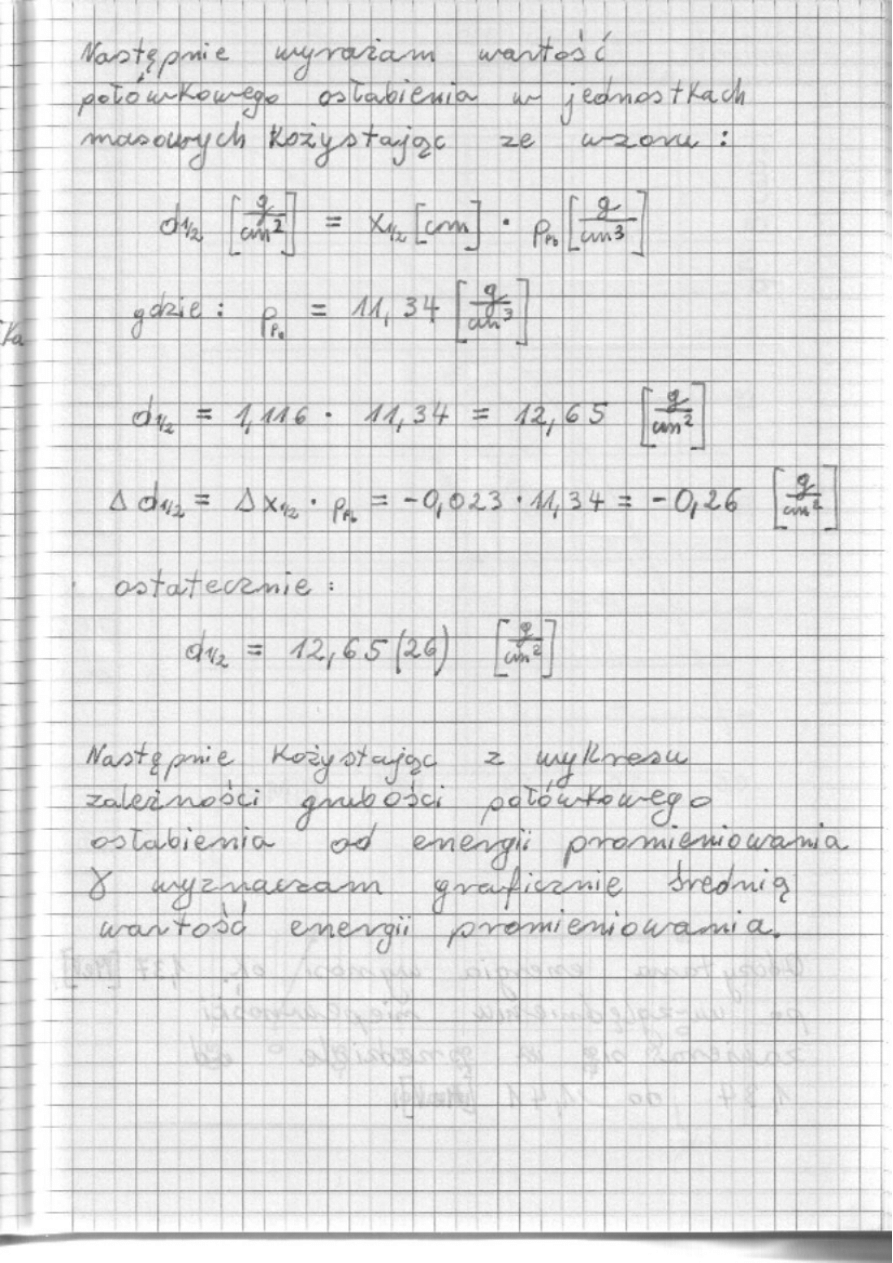 Następnie wyrażam wartość
połówkowego osłabienia w jednostkach
masowych kożystając ze wzoru :
d1/2 [g/cm²] = x1/2 [cm] · ρPb [g/cm³]
gdzie : ρPb = 11,34 [g/cm³]
d1/2 = 1,116 · 11,34 = 12,65 [g/cm²]
Δ d1/2 = Δ x1/2 · ρPb = -0,023 · 11,34 = -0,26 [g/cm²]
ostatecznie :
d1/2 = 12,65(26) [g/cm²]
Następnie kożystając z wykresu
zależności grubości połówkowego
osłabienia od energii promieniowania
γ wyznaczam graficznie średnią
wartość energii promieniowania.
ka